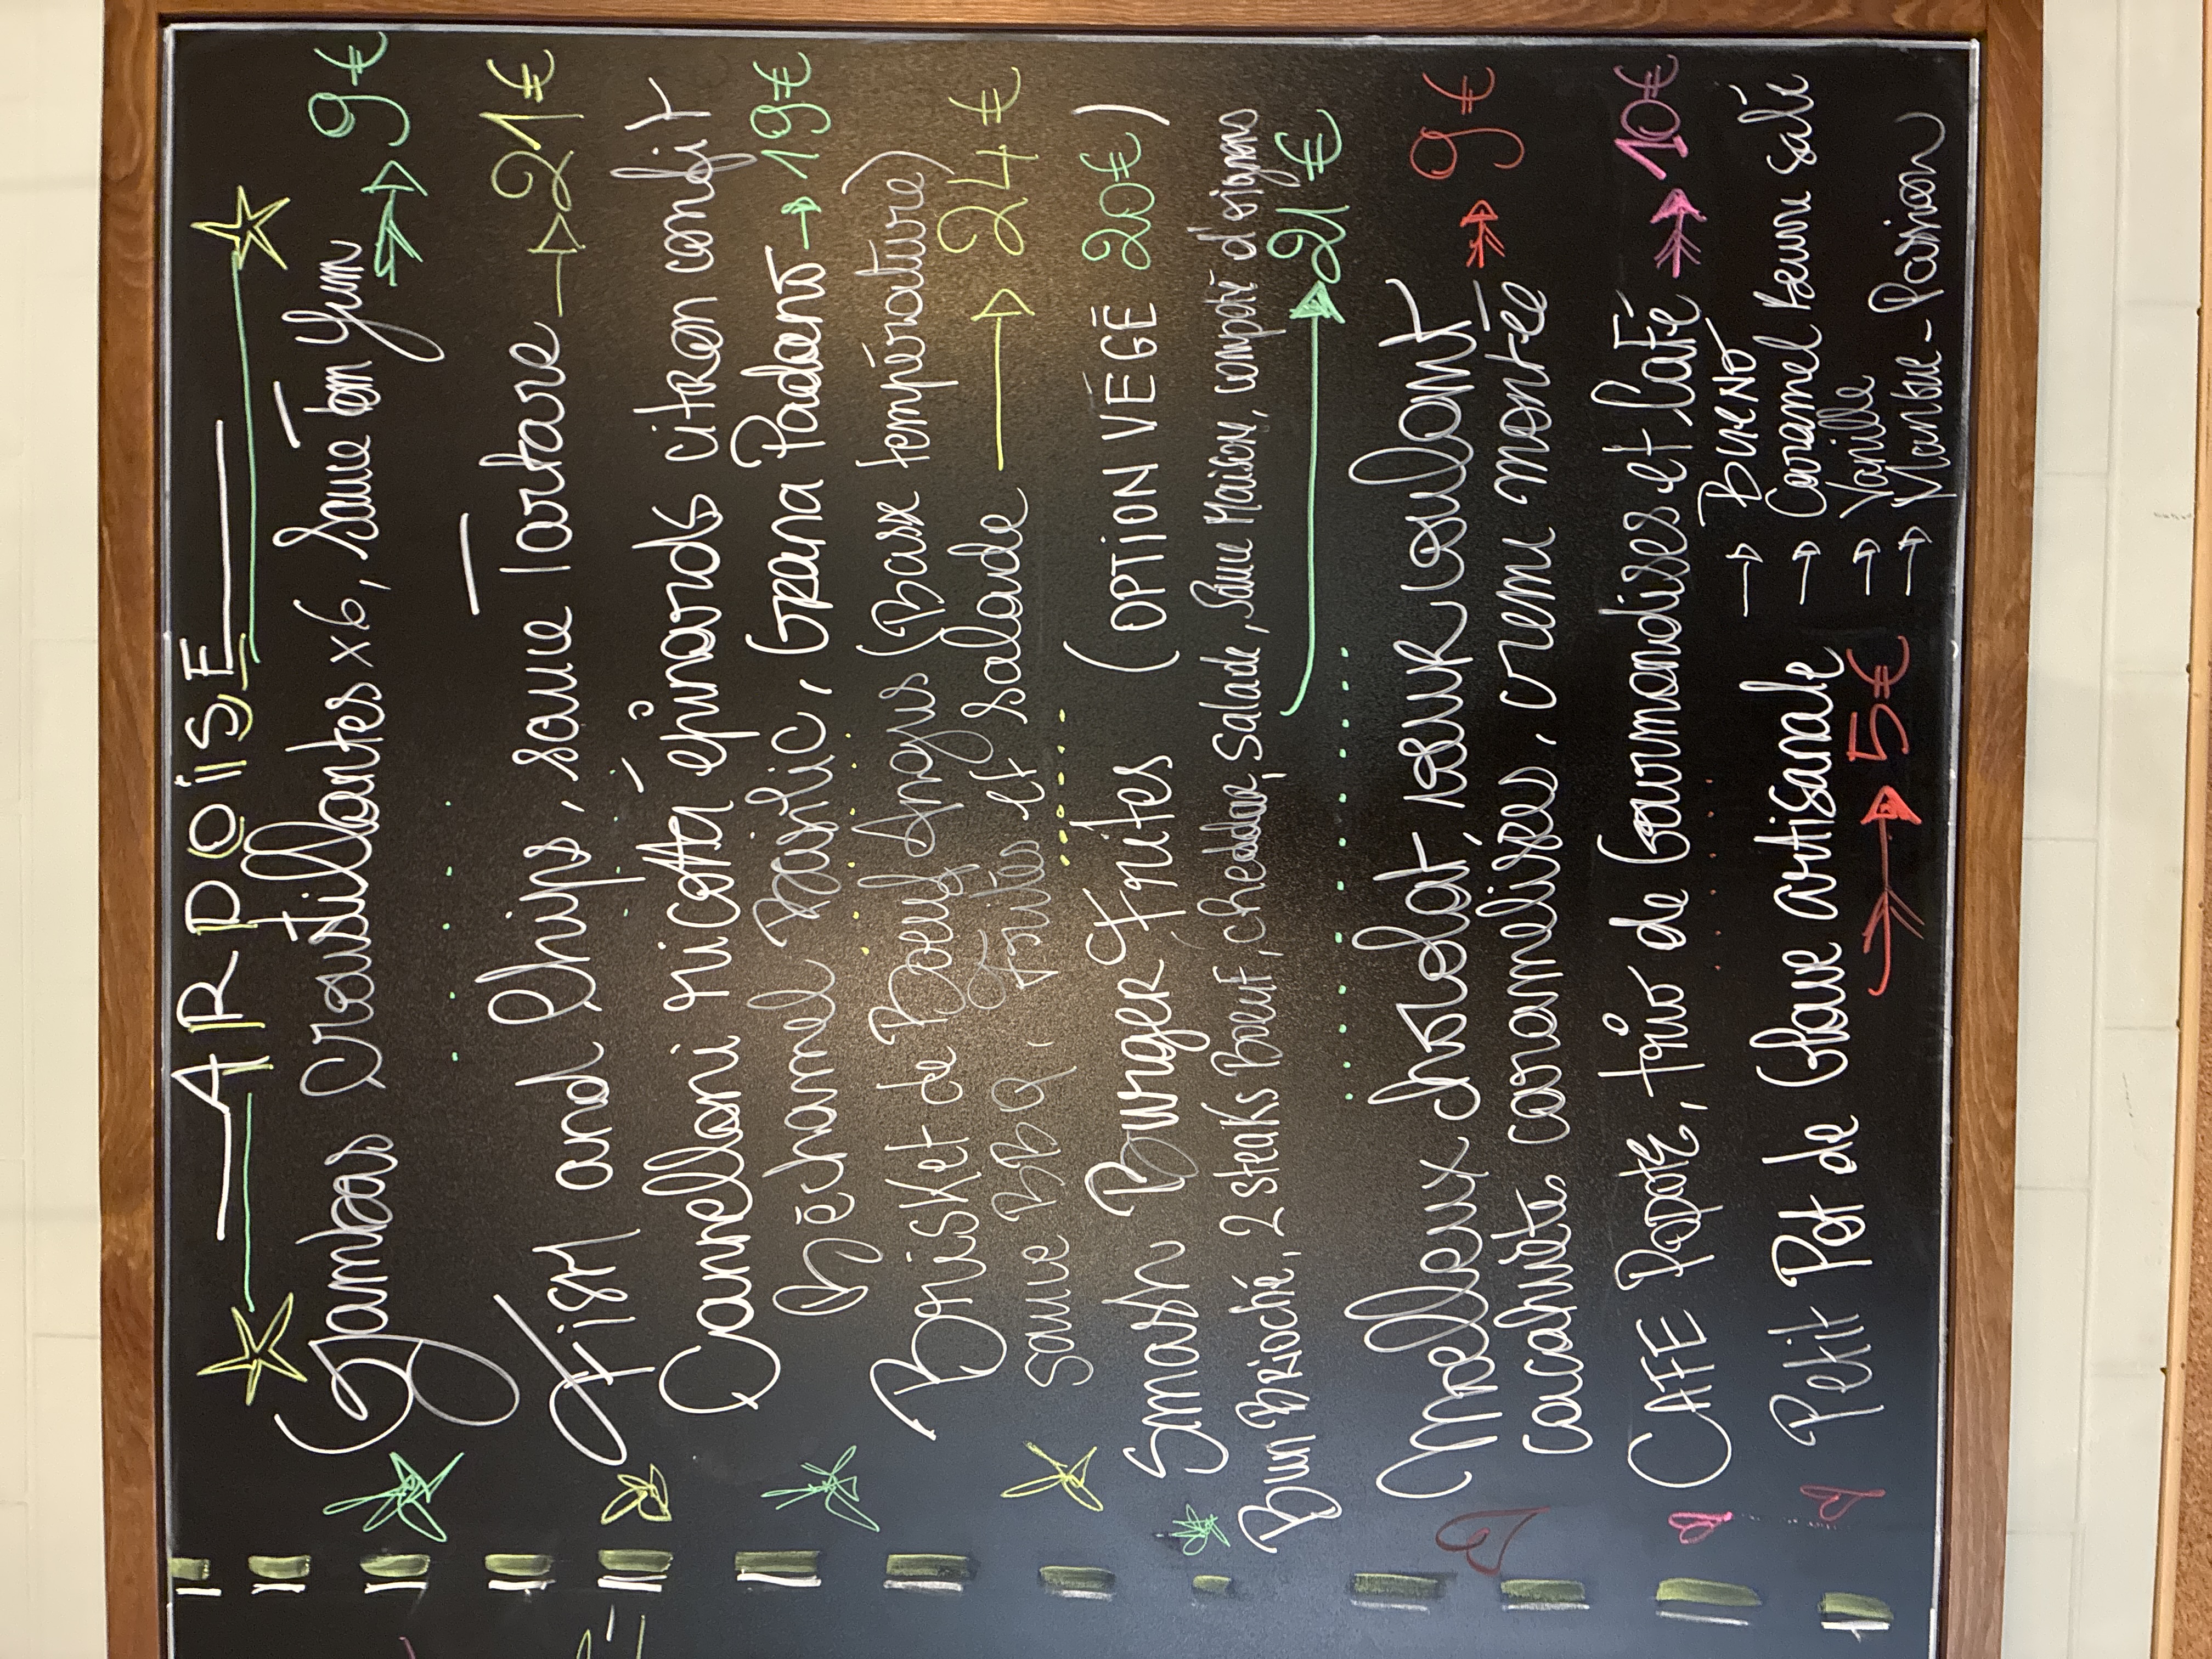 ARDOISE
Gambas Croustillantes x6, Sauce Tom Yum → 9€
Fish and Chips, sauce Tartare → 21€
Cannelloni ricotta épinards citron confit
Béchamel basilic, Grana Padano → 19€
Brisket de Boeuf Angus (Basse température)
sauce BBQ, Frites et Salade → 24€
Smash Burger Frites (OPTION VÉGÉ 20€)
Bun Brioché, 2 steaks Boeuf, cheddar, Salade, Sauce Maison, compoté d'oignons
→ 21€
Moelleux chocolat, coeur coulant
cacahuète caramelisées, creme montée → 9€
CAFE Papote, trio de Gourmandises et Café → 10€
Petit Pot de Glace artisanale → BUENO
→ Caramel beurre salé
→ 5€ → Vanille
→ Mangue - Passion